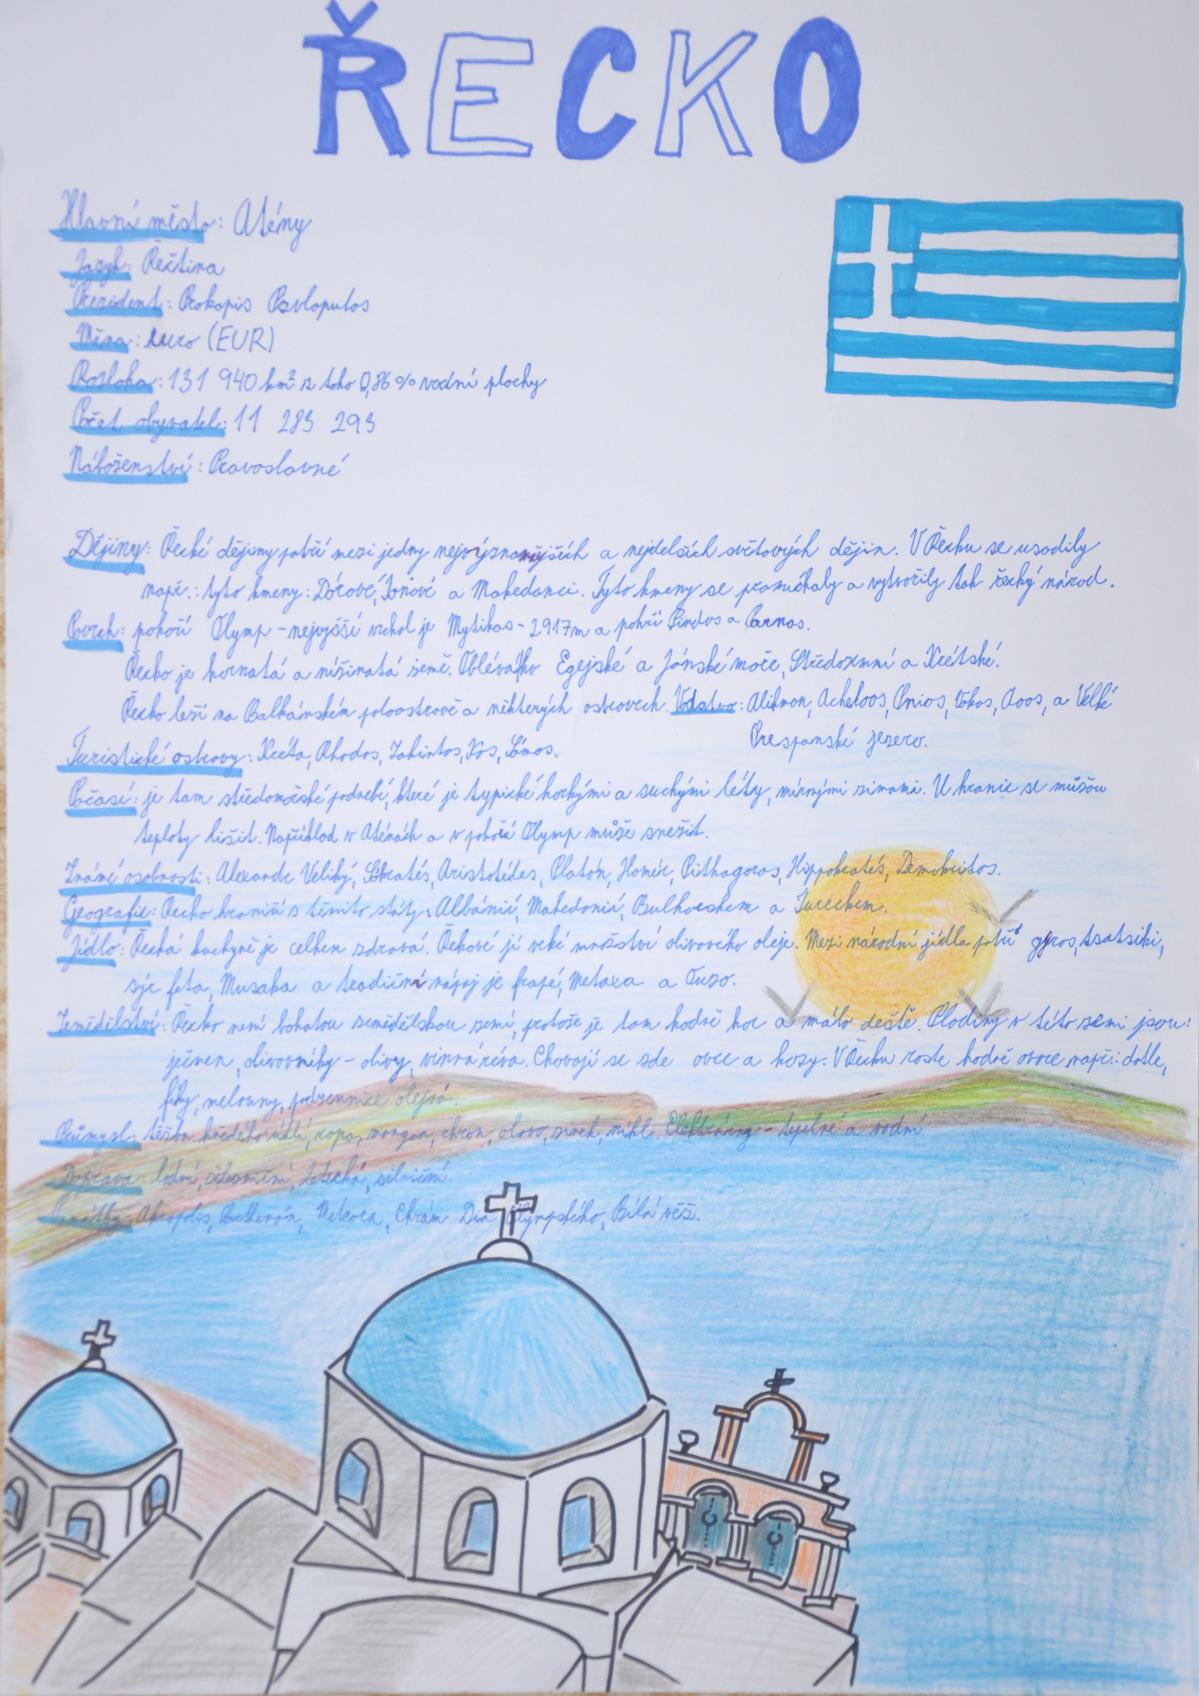 ŘECKO
Hlavní město: Atény
Jazyk: Řečtina
Prezident: Prokopis Pavlopulos
Měna: euro (EUR)
Rozloha: 131 940 km² z toho 0,86 % vodní plochy
Počet obyvatel: 11 283 293
Náboženství: Pravoslavné
Dějiny: Řecké dějiny patří mezi jedny nejvýznamějších a nejdelších světových dějin. V Řecku se usadily
např.: tyto kmeny: Dórové, Iónové a Makedonci. Tyto kmeny se promíchaly a vytvořily tak řecký národ.
Povrch: pohoří Olymp - nejvyšší vrchol je Mytikas - 2917m a pohoří Pindos a Parnas.
Řecko je hornatá a nížinatá země. Oblévá ho Egejské a Jónské moře, Středozemní a Krétské.
Řecko leží na Balkánském poloostrově a některých ostrovech. Vodstvo: Alikmon, Acheloos, Pinios, Vikos, Aoos, a Velké
Prespanské jezero.
Turistické ostrovy: Kréta, Rhodos, Zakintos, Kos, Sámos.
Počasí: je tam středomořské podnebí, které je typické horkými a suchými léty, mírnými zimami. U hranic se můžou
teploty lišit. Například v Aténách a v pohoří Olymp může sněžit.
Známé osobnosti: Alexandr Veliký, Sókratés, Aristotéles, Platón, Homér, Pithagoras, Hippokratés, Démokritos.
Geografie: Řecko hraničí s těmito státy: Albánií, Makedonií, Bulharskem a Tureckem.
Jídlo: Řecká kuchyně je celkem zdravá. Řekové jí velké množství olivového oleje. Mezi národní jídla patří gyros, tsatsiki,
sýr feta, Musaka a tradiční nápoj je frapé, Metaxa a Ouzo.
Zemědělství: Řecko není bohatou zemědělskou zemí, protože je tam hodně hor a málo deště. Plodiny v této zemi jsou:
ječmen, olivovníky - olivy, vinná réva. Chovají se zde ovce a kozy. V Řecku roste hodně ovoce např.: datle,
fíky, melouny, podzemnice olejná.
Průmysl: těžba hnědého uhlí, ropa, mangan, chrom, olovo, zinek, nikl. Elektrárny - tepelné a vodní
Doprava: lodní, železniční, letecká, silniční.
Památky: Akropolis, Parthenón, Meteora, Chrám Dia Olympského, Bílá věž.